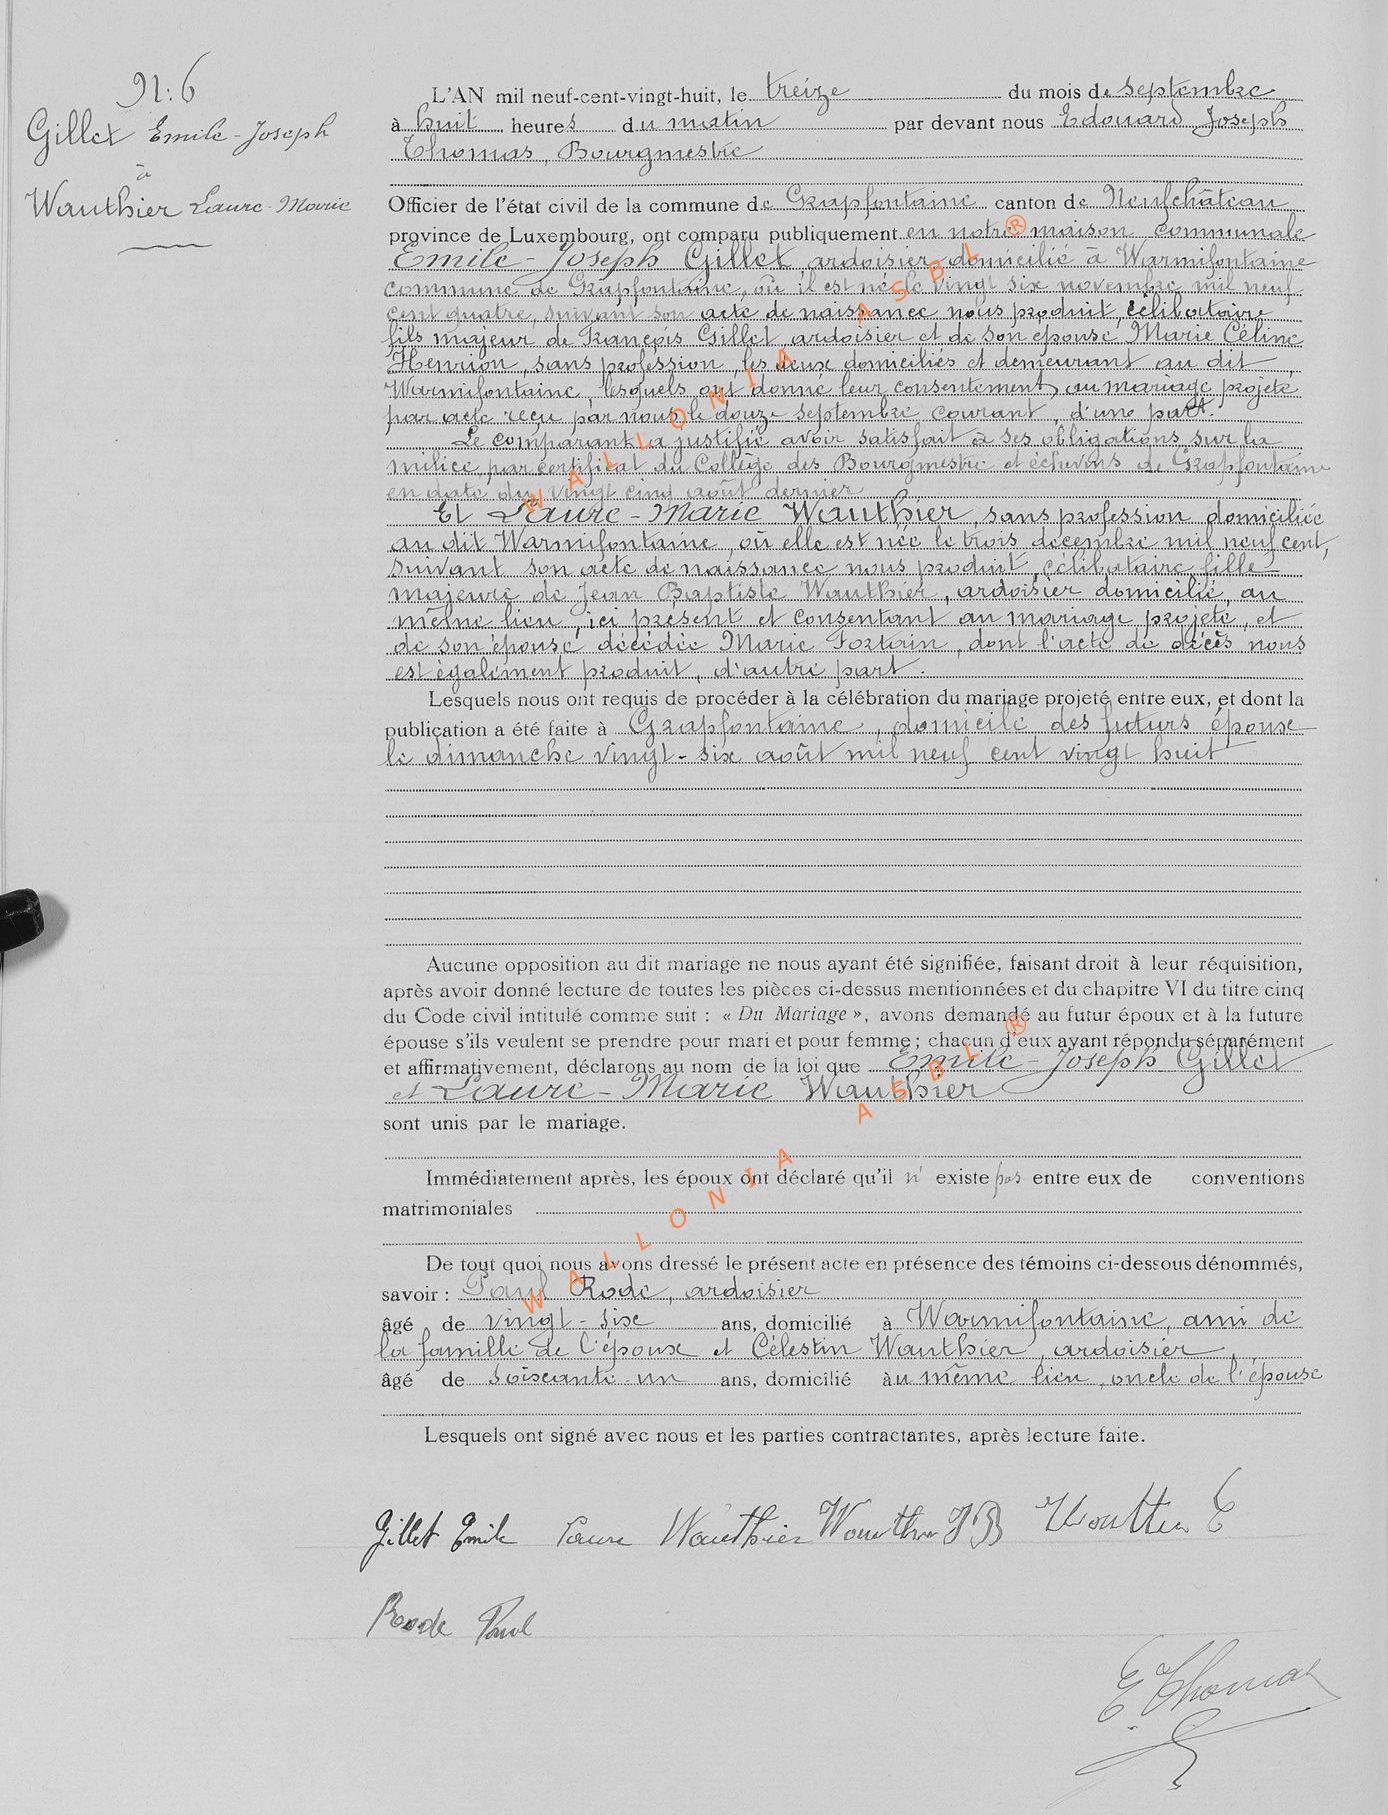 N: 6
Gillet Emile-Joseph
à
Wauthier Laure-Marie
L'AN mil neuf-cent-vingt-huit, le treize du mois de septembre
à huit heures du matin par devant nous Edouard Joseph
Thomas, Bourgmestre
Officier de l'état civil de la commune de Grapfontaine canton de Neufchâteau
province de Luxembourg, ont comparu publiquement en notre maison communale
Emile-Joseph Gillet ardoisier domicilié à Warmifontaine
commune de Grapfontaine, où il est né le vingt six novembre mil neuf
cent quatre, suivant son acte de naissance nous produit, célibataire
fils majeur de François Gillet, ardoisier et de son épouse Marie Céline
Henrion, sans profession, les deux domiciliés et demeurant au dit
Warmifontaine, lesquels ont donné leur consentement au mariage projeté
par acte reçu par nous le douze septembre courant, d'une part.
Le comparant a justifié avoir satisfait à ses obligations sur la
milice par certificat du Collège des Bourgmestre et échevins de Grapfontaine
en date du vingt cinq août dernier
Et Laure-Marie Wauthier, sans profession domiciliée
au dit Warmifontaine, où elle est née le trois décembre mil neuf cent,
suivant son acte de naissance nous produit, célibataire fille
majeure de Jean Baptiste Wauthier, ardoisier domicilié au
même lieu, ici présent et consentant au mariage projeté, et
de son épouse décédée Marie Fortain, dont l'acte de décès nous
est également produit, d'autre part.
Lesquels nous ont requis de procéder à la célébration du mariage projeté entre eux, et dont la
publication a été faite à Grapfontaine, domicile des futurs époux
le dimanche vingt-six août mil neuf cent vingt huit
Aucune opposition au dit mariage ne nous ayant été signifiée, faisant droit à leur réquisition,
après avoir donné lecture de toutes les pièces ci-dessus mentionnées et du chapitre VI du titre cinq
du Code civil intitulé comme suit : « Du Mariage », avons demandé au futur époux et à la future
épouse s'ils veulent se prendre pour mari et pour femme ; chacun d'eux ayant répondu séparément
et affirmativement, déclarons au nom de la loi que Emile-Joseph Gillet
et Laure-Marie Wauthier
sont unis par le mariage.
Immédiatement après, les époux ont déclaré qu'il n' existe pas entre eux de conventions
matrimoniales
De tout quoi nous avons dressé le présent acte en présence des témoins ci-dessous dénommés,
savoir : Paul Rode, ardoisier
âgé de vingt-six ans, domicilié à Warmifontaine, ami de
la famille de l'époux et Célestin Wauthier, ardoisier,
âgé de soixante-un ans, domicilié au même lieu, oncle de l'épouse
Lesquels ont signé avec nous et les parties contractantes, après lecture faite.
Gillet Emile Laure Wauthier Wauthier J B Wouttier C
Rode Paul
E. Thomas
WALLONIA ASBL ®
WALLONIA ASBL ®